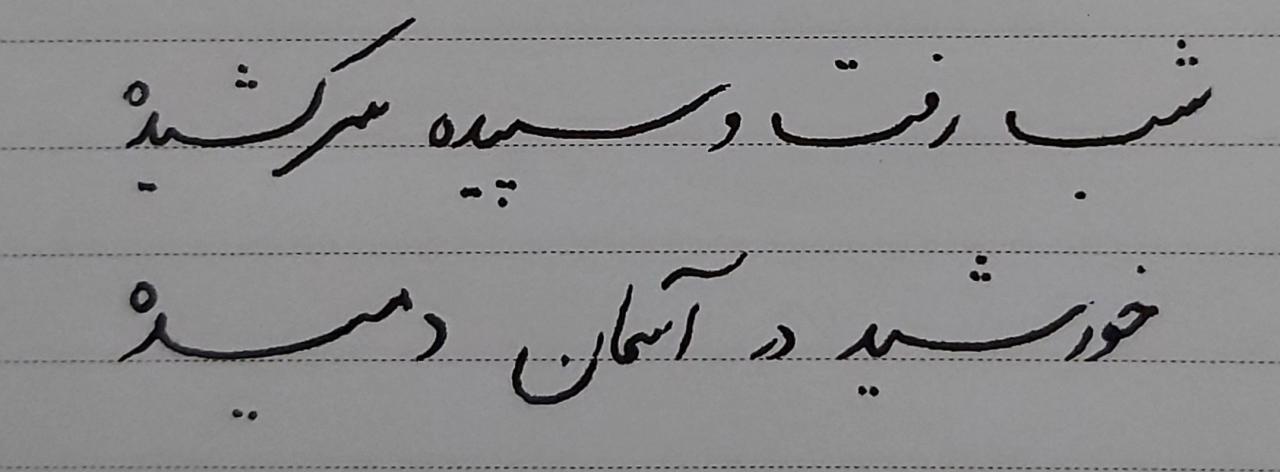 شب رفت و سپیده سرکشیده
خورشید در آسمان دمیده